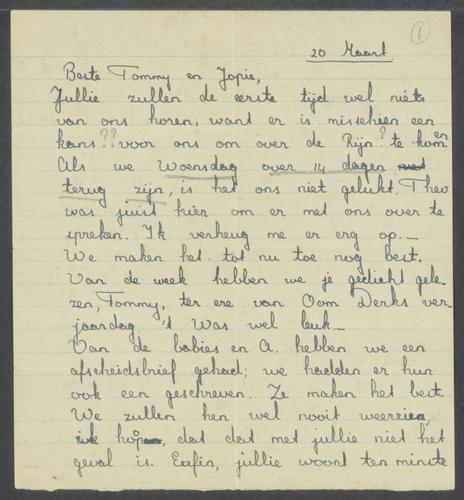 1
20 Maart.
Beste Tommy en Jopie,
Jullie zullen de eerste tijd wel niets
van ons horen, want er is misschien een
kans?? voor ons om over de Rijn? te komen
Als we Woensdag over 14 dagen niet
terug zijn, is het ons niet gelukt. Theo
was juist hier om er met ons over te
spreken. Ik verheug me er erg op._
We maken het tot nu toe nog best.
Van de week hebben we je gedicht gele-
zen, Tommy, ter ere van Oom Derks ver-
jaardag. 't Was wel leuk._
Van de babies en A. hebben we een
afscheidsbrief gehad; we hadden er hun
ook een geschreven. Ze maken het best.
We zullen hen wel nooit weerzien,
ik hoop, dat dat met jullie niet het
geval is. Enfin, jullie woont ten minste